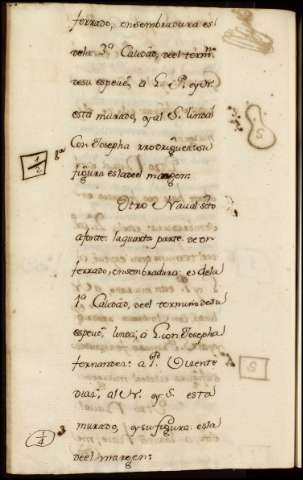 ferrado, ensembradura es
dela 3ª Calidad, deel term.º
desu especie, a L. P. y N.
esta murado, y al S. linda
Con Josepha Rodriguez su
figura es la del margen
Otro Naval sito
afonte, la quarta parte de vn
ferrado, ensembradura: es de la
1ª Calidad, de el termino desu
especie, linda; a L. con Josepha
fernandez: a P. Vicente
Dias, al N. y S. esta
murado, y su figura: esta
de el margen:
1/2
S
S
1/4